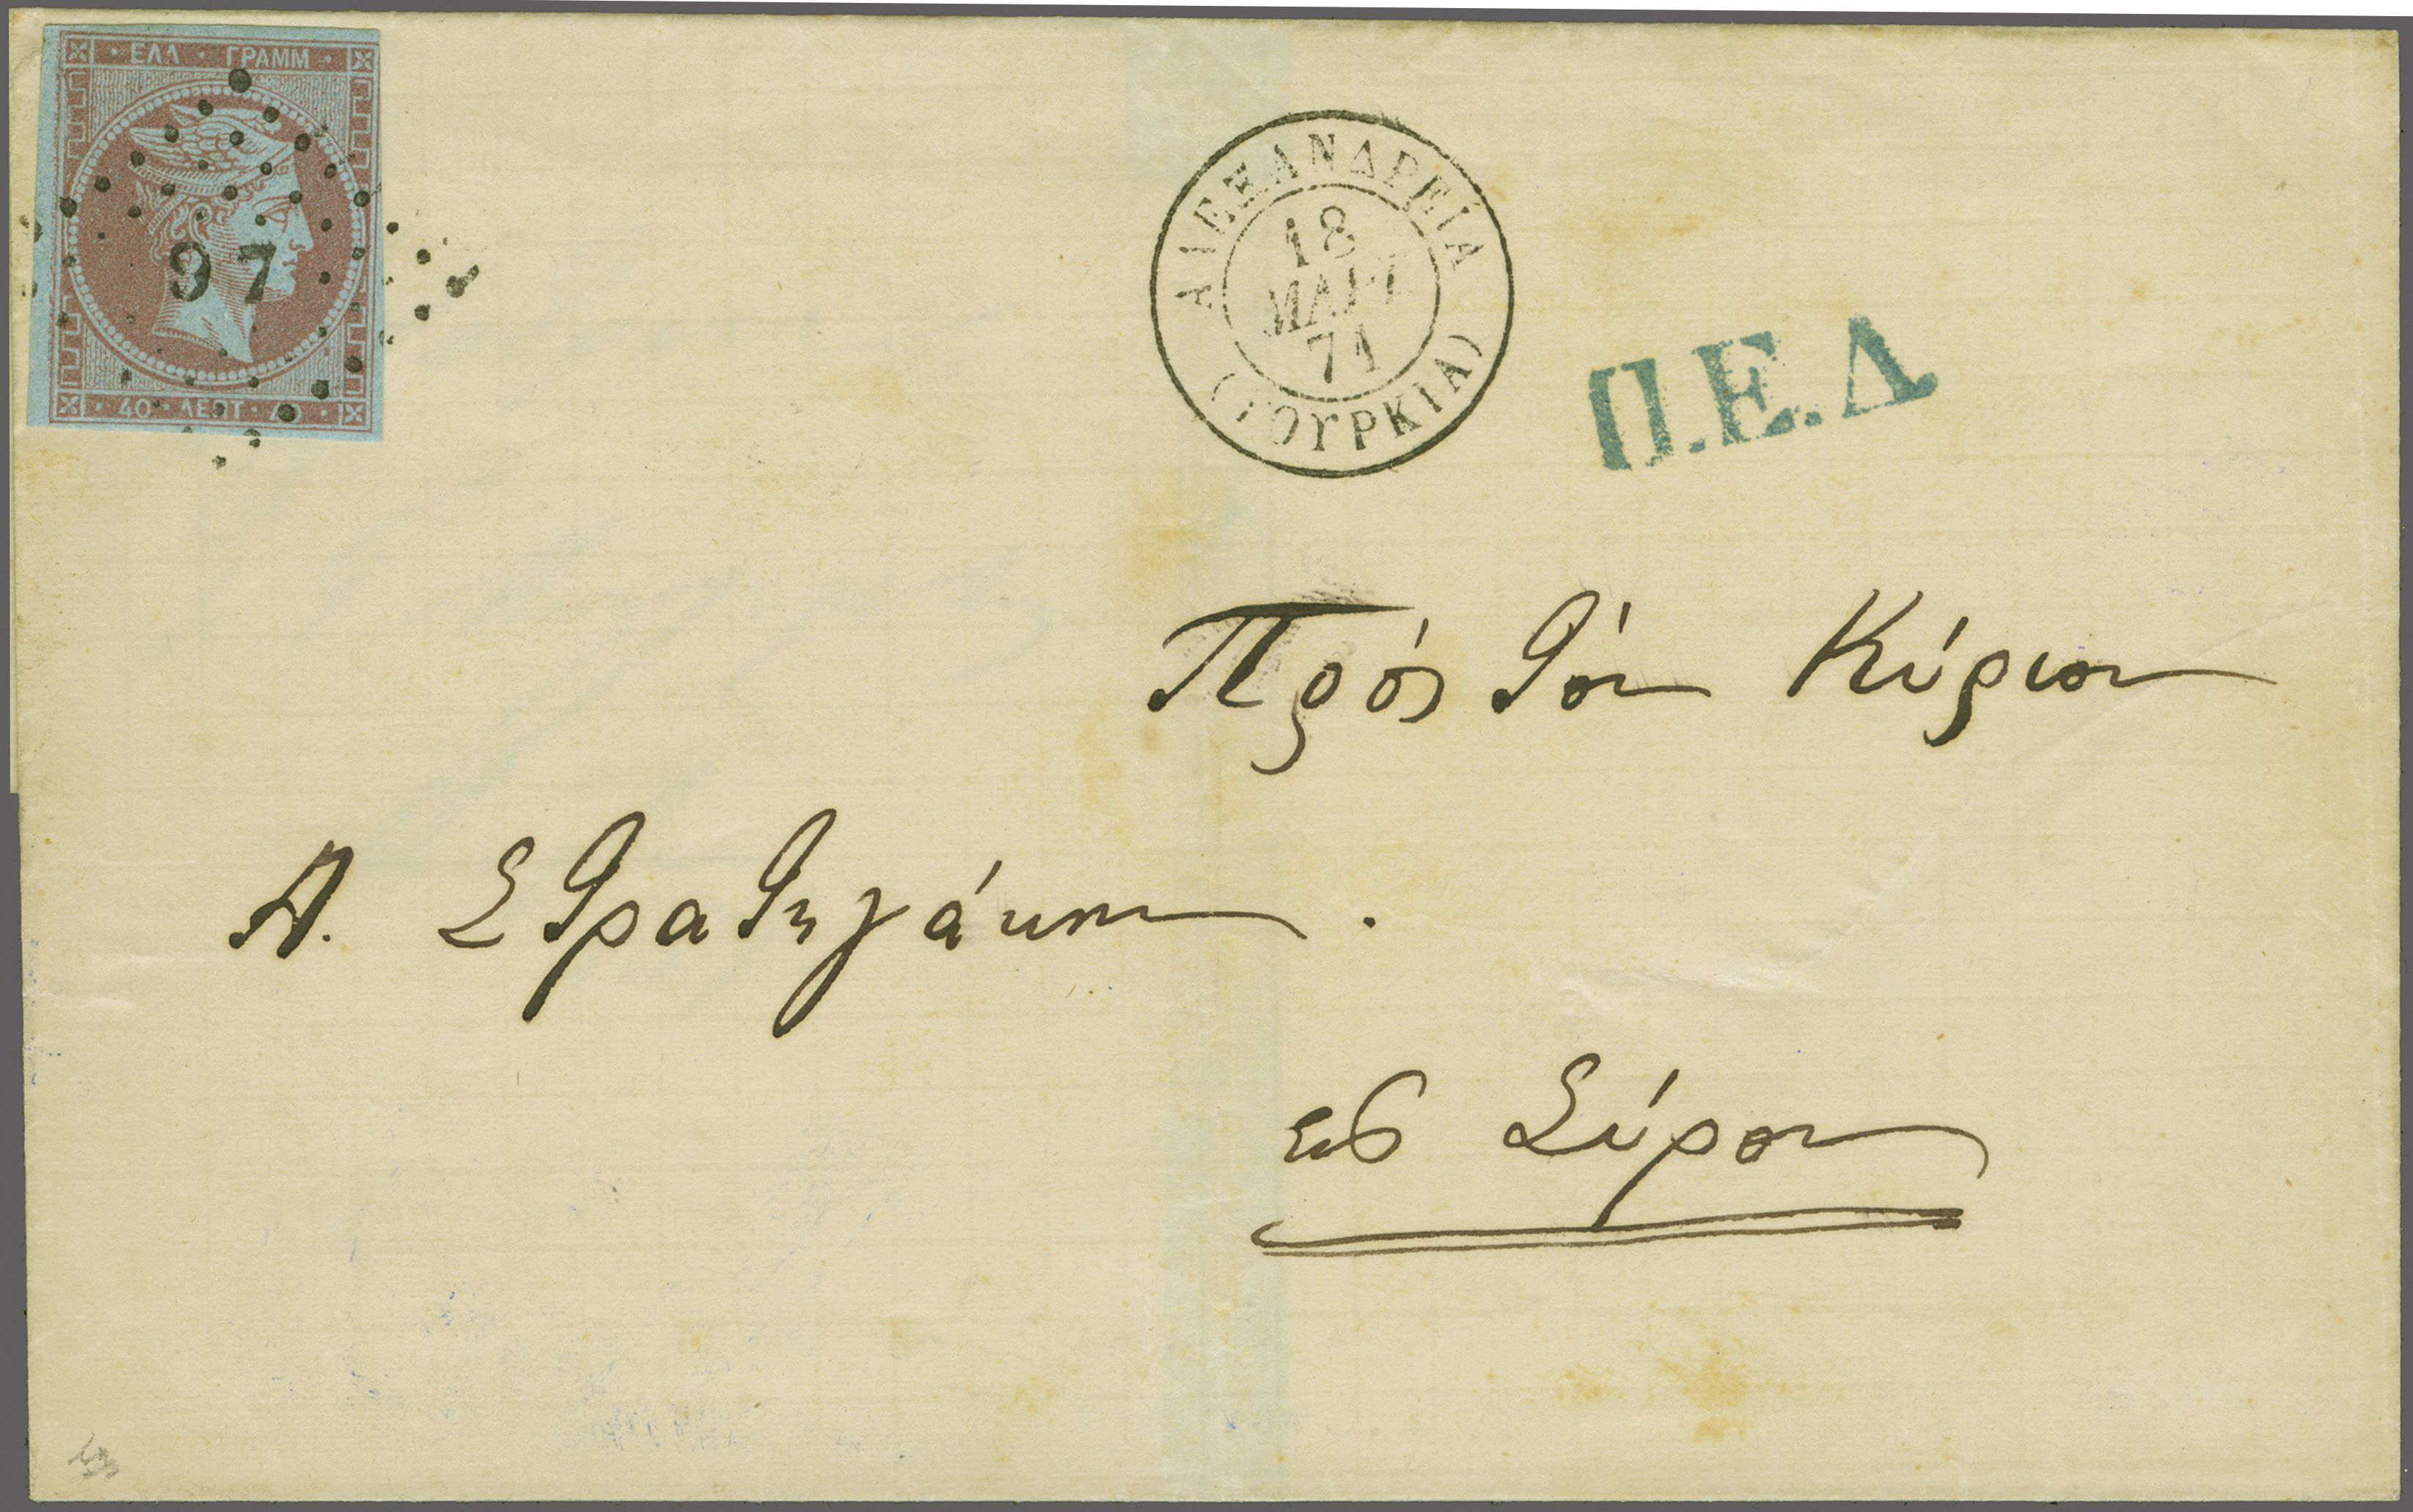 ΕΛΛ · ΓΡΑΜΜ
97
40 · ΛΕΠΤ · 40
ΑΛΕΞΑΝΔΡΕΙΑ
18
ΜΑΡΤ
71
(ΤΟΥΡΚΙΑ)
Π.Ε.Δ
Πρός τόν Κύριον
Α. Στρατηγάκην.
εις Σύρον